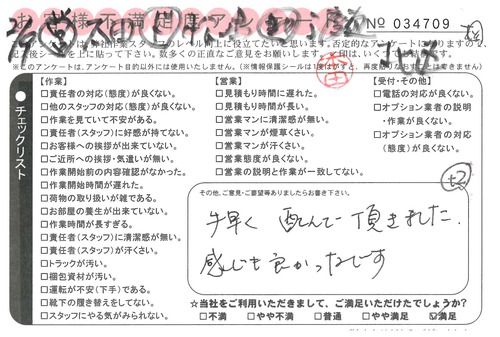 お客様不満足度アンケート
No 034709
※このアンケートは、アンケート目的以外には使用いたしません。
チェックリスト
【作業】
□責任者の対応(態度)が良くない。
□他のスタッフの対応(態度)が良くない。
□作業を見ていて不安がある。
□責任者(スタッフ)に好感が持てない。
□お客様への挨拶が出来ていない。
□ご近所への挨拶・気遣いが無い。
□作業開始前の内容確認がなかった。
□作業開始時間が遅れた。
□荷物の取り扱いが雑である。
□お部屋の養生が出来ていない。
□作業時間が長すぎる。
□責任者(スタッフ)に清潔感が無い。
□責任者(スタッフ)が汗くさい。
□トラックが汚い。
□梱包資材が汚い。
□運転が不安(下手)である。
□靴下の履き替えをしてない。
□スタッフにやる気がみられない。
【営業】
□見積もり時間に遅れた。
□見積もり時間が長い。
□営業マンに清潔感が無い。
□営業マンが煙草くさい。
□営業マンが汗くさい。
□営業態度が良くない。
□営業の説明と作業が一致してない。
【受付・その他】
□電話の対応が良くない。
□オプション業者の説明
・作業が良くない。
□オプション業者の対応
(態度)が良くない。
その他、ご意見・ご要望等ありましたらお書き下さい。
手早く 頂きました.
感じも良かったです
☆当社をご利用いただきまして、ご満足いただけたでしょうか?
□不満 □やや不満 □普通 □やや満足 ☑満足